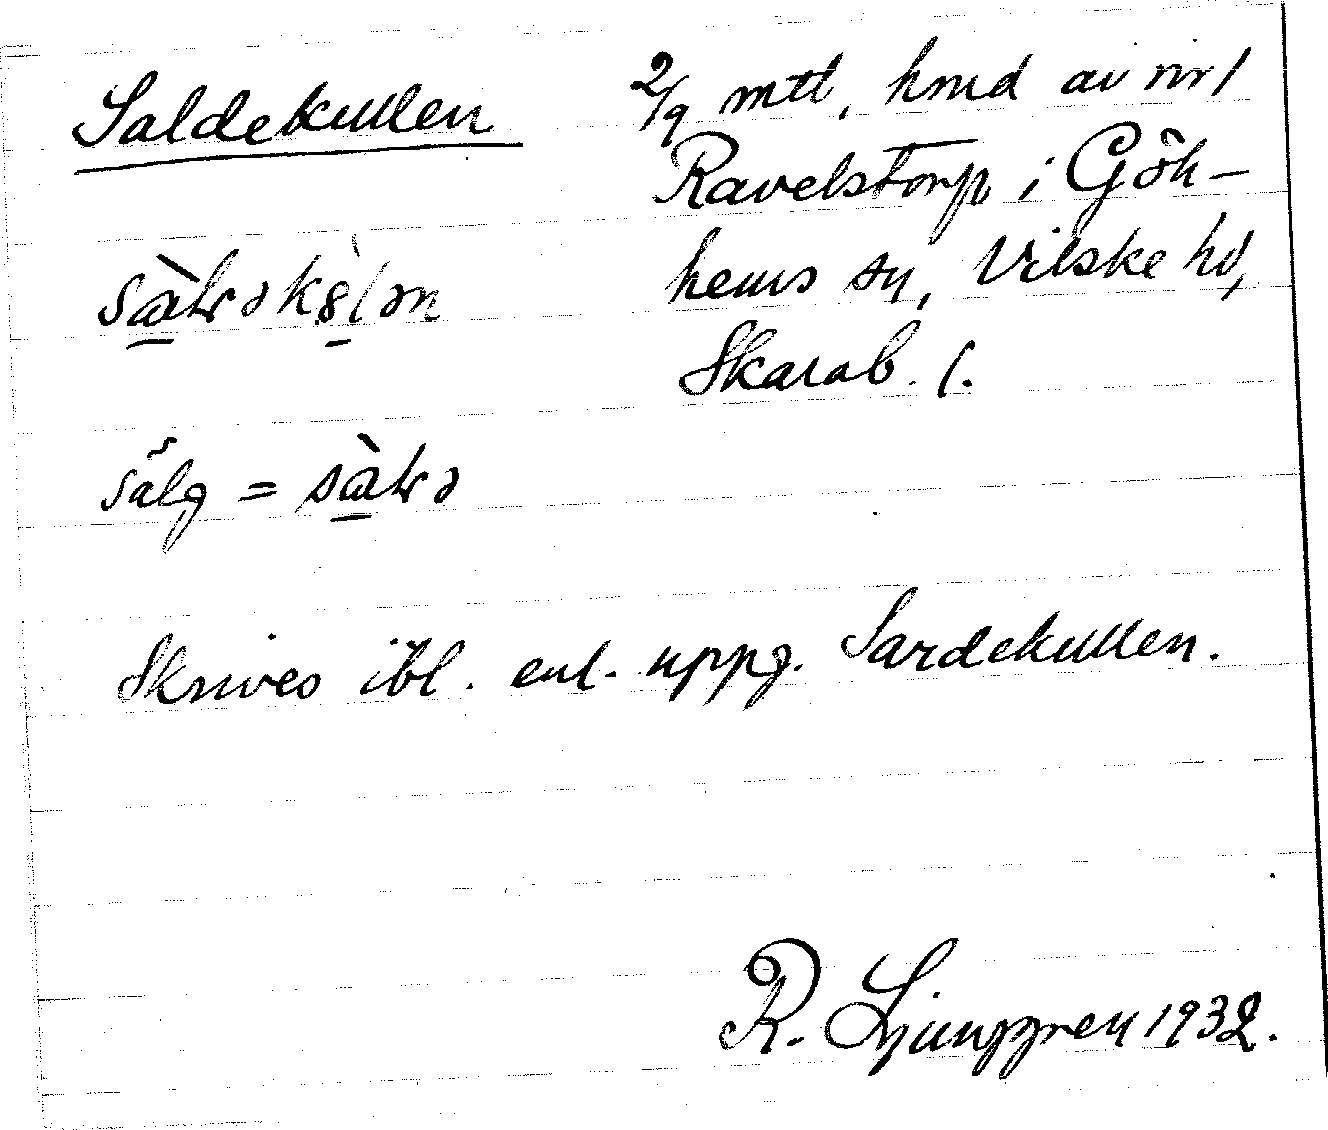 Saldekullen
2/9 mtl, hmd av nr 1
Ravelstorp i Gök-
hems sn, Vilske hd,
Skarab. l.
sälg =
Skrives ibl. enl. uppg. Sardekullen.
R. Ljunggren 1932.